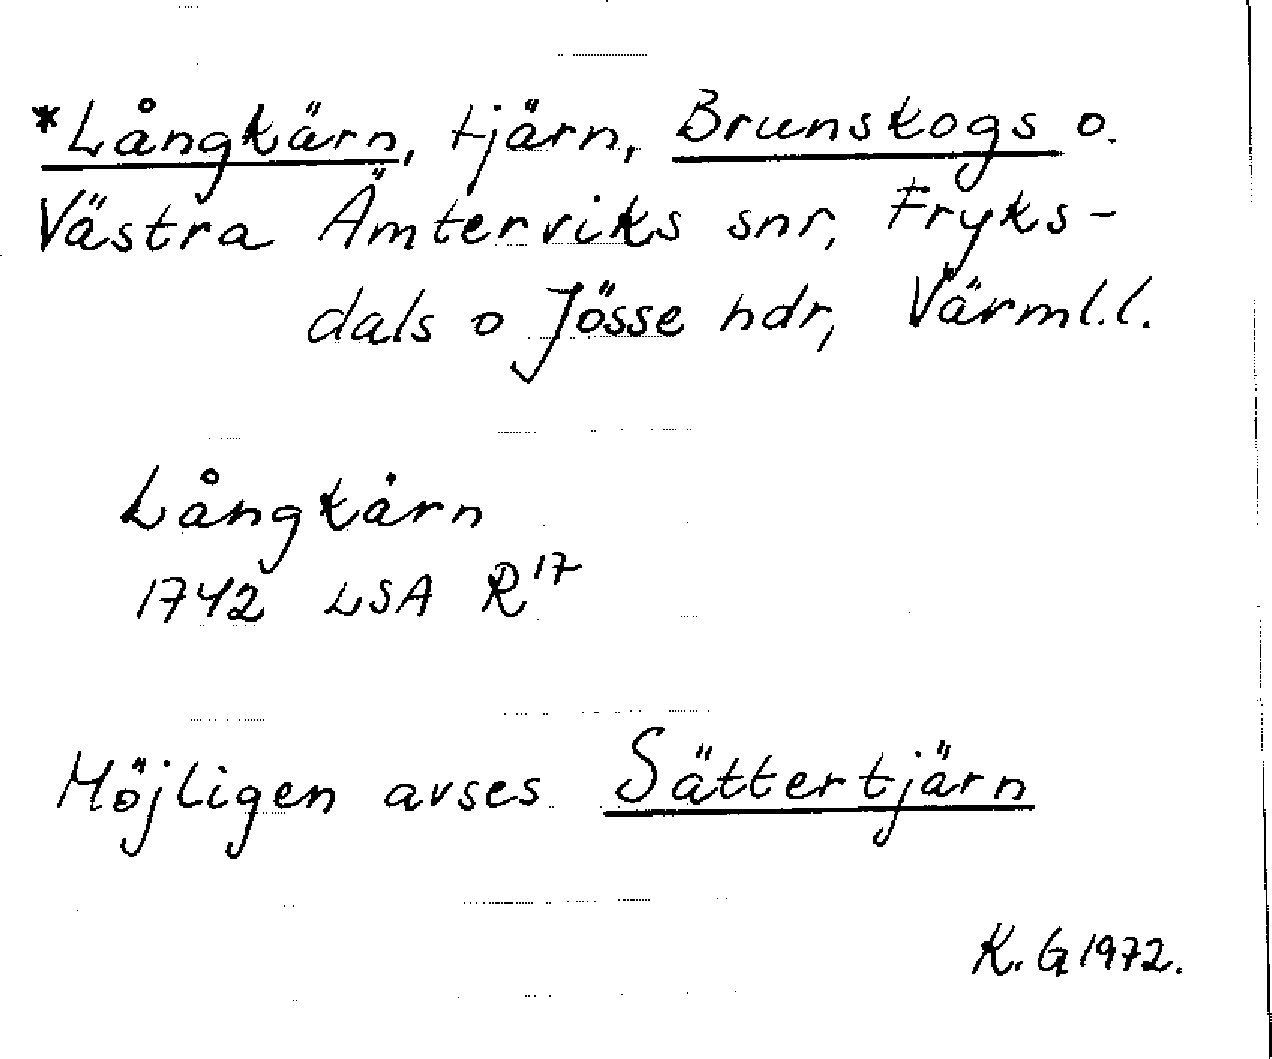 *Långkärn, tjärn, Brunskogs o.
Västra Ämterviks snr, Fryks-
dals o Jösse hdr, Värml.l.
Långkårn
1742 LSA R17
Möjligen avses Sättertjärn
K. G 1972.